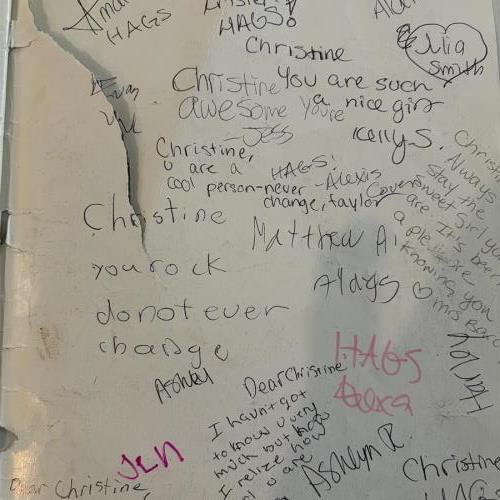 HAGS
HAGS!
Christine
Julia
Smith
Evan
Christine You are such
awesome you're a nice girl
-Jess
Kelly S.
Christine,
u are a
cool person-never
change, taylor
HAGS!
-Alexis
Christine
you rock
do not ever
change
Ashley
Matthew A
Hags ♡
Always
stay the
sweet girl you
are It's been
a pleasure
knowing you
HAGS
Alexa
Jen
Dear Christine
I havnt got
to know u very
much but
I relize how
u are
Ashlyn R.
Christine
Dear Christine,